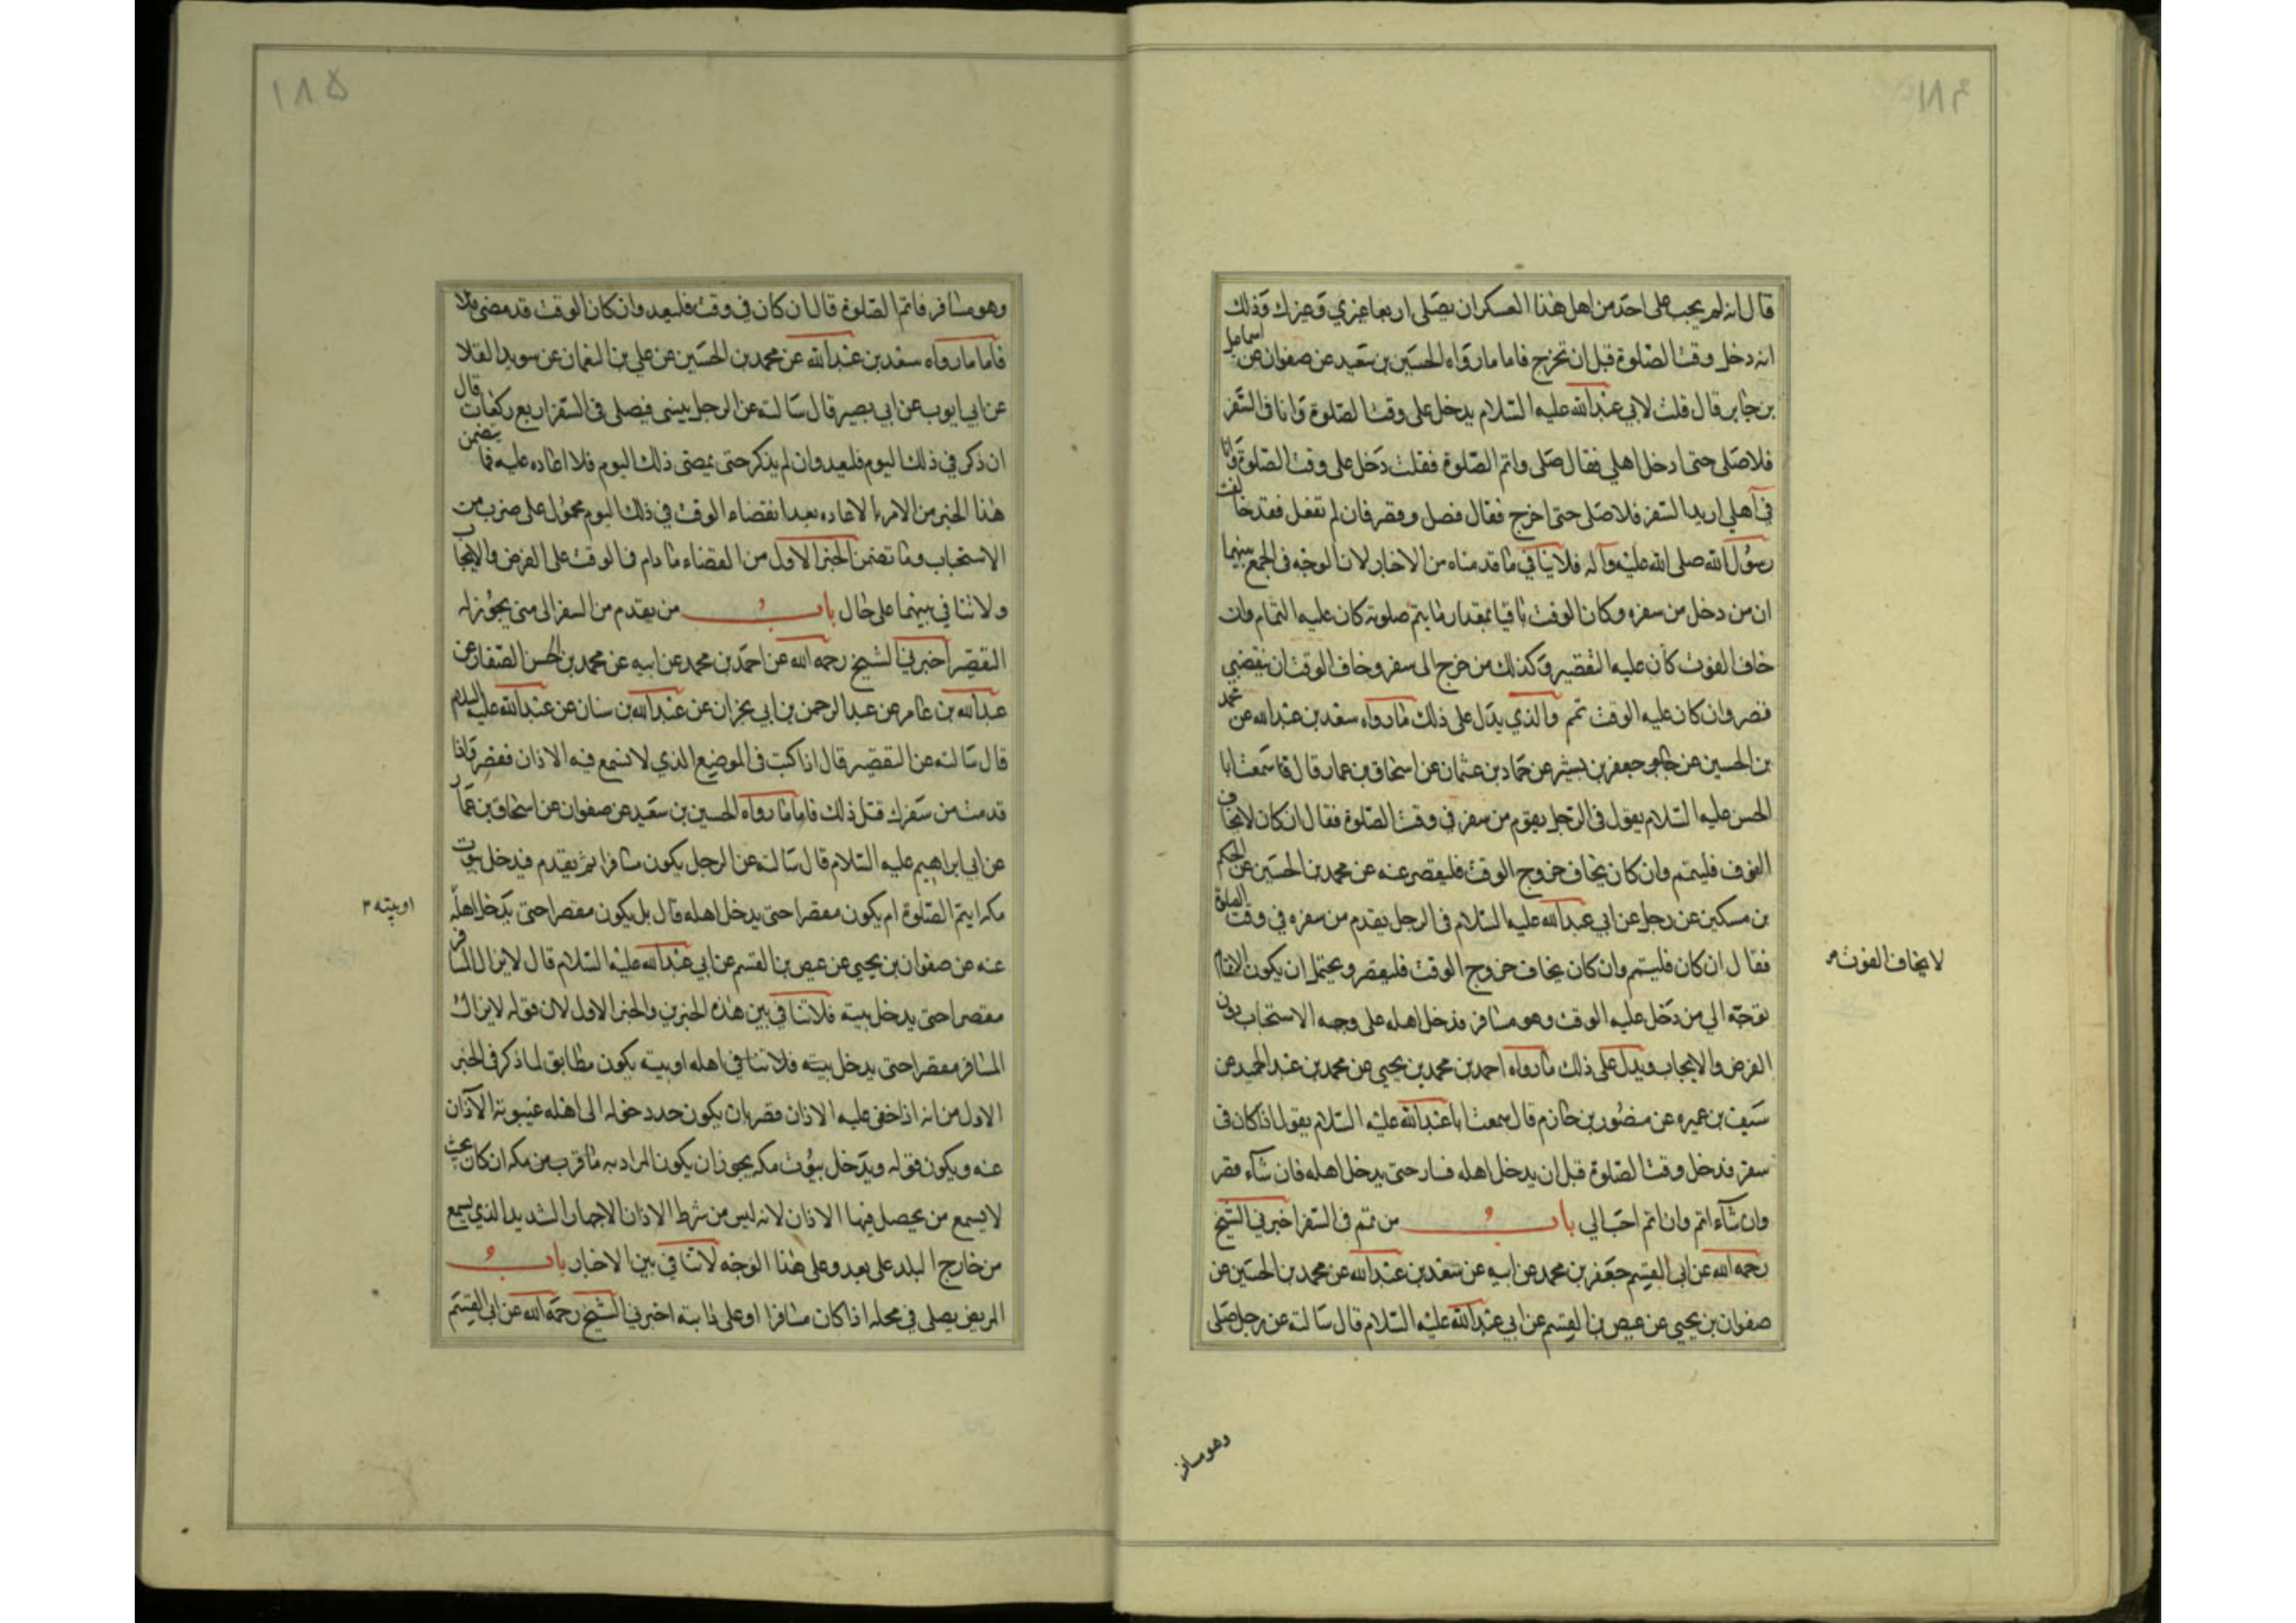 قال انه لم يجب على احد من اهل هذا العسكر ان يصلى اربعا غيري وغيرك وذلك
انه دخل وقت الصلوة قبل ان تخرج فاما ما رواه الحسين بن سعيد عن صفوان عن اسماعيل
بن جابر قال قلت لابي عبدالله عليه السلام يدخل على وقت الصلوة وانا في السفر
فلا صلى حتى ادخل اهلي فقال صلى واتم الصلوة فقلت دخل على وقت الصلوة وانا
في اهلي اريد السفر فلا صلى حتى اخرج فقال فصل وقصر فان لم تفعل فقد خالفت
رسول الله صلى الله عليه وآله فلا ينافي ما قدمناه من الاخبار لان الوجه في الجمع بينهما
ان من دخل من سفره وكان الوقت باقيا بمقدار ما يتم صلوته كان عليه التمام وان
خاف الفوت كان عليه التقصير وكذلك من خرج الى سفر وخاف الوقت ان ينقضي
قصر وان كان عليه الوقت تمم والذي يدل على ذلك ما رواه سعد بن عبدالله عن محمد
بن الحسين عن جعفر بن بشير عن حماد بن عثمان عن اسحاق بن عمار قال سمعت ابا
الحسن عليه السلام يقول في الرجل يقوم من سفر في وقت الصلوة فقال ان كان لا يخاف
الفوف فليتم وان كان يخاف خروج الوقت فليقصر عنه عن محمد بن الحسين عن الحكم
بن مسكين عن رجل عن ابي عبدالله عليه السلام في الرجل يقدم من سفره في وقت الصلوة
فقال ان كان فليتم وان كان يخاف خروج الوقت فليقصر ويحتمل ان يكون الاتمام
لا يخاف الفوت
توجه الي من دخل عليه الوقت وهو مسافر فدخل اهله على وجه الاستحباب دون
الفرض والايجاب ويدل على ذلك ما رواه احمد بن محمد بن يحيى عن محمد بن عبد الحميد عن
سيف بن عميره عن منصور بن حازم قال سمعت ابا عبدالله عليه السلام يقول اذا كان في
سفر فدخل وقت الصلوة قبل ان يدخل اهله فسار حتى يدخل اهله فان شاء قصر
وان شاء اتم وان اتم احب الي باب من تمم في السفر اخبرني الشيخ
رحمه الله عن ابي القسم جعفر بن محمد عن ابيه عن سعد بن عبدالله عن محمد بن الحسين عن
صفوان بن يحيى عن عيص بن القسم عن ابي عبدالله عليه السلام قال سالته عن رجل صلى
وهو مسافر
١٨٥
وهو مسافر فاتم الصلوة قال ان كان في وقت فليعد وان كان الوقت قد مضى فلا
فاما ما رواه سعد بن عبدالله عن محمد بن الحسين عن علي بن النعمان عن سويد القلا
عن ابي ايوب عن ابي بصير قال سالته عن الرجل ينسى فيصلى في السفر اربع ركعات قال
ان ذكر في ذلك اليوم فليعد وان لم يذكر حتى يمضى ذلك اليوم فلا اعاده عليه فما يتضمن
هذا الخبر من الامر بالاعاده بعد انقضاء الوقت في ذلك اليوم محمول على ضرب من
الاستحباب وما تضمن الخبر الاول من القضاء ما دام في الوقت على الفرض والايجاب
ولا تنافي بينهما على حال باب من يقدم من السفر الى متى يجوز له
التقصير اخبرني الشيخ رحمه الله عن احمد بن محمد عن ابيه عن محمد بن الحسن الصفار عن
عبدالله بن عامر عن عبد الرحمن بن ابي نجران عن عبدالله بن سنان عن عبدالله عليه السلام
قال سالته عن التقصير قال اذا كنت في الموضع الذي لا تسمع فيه الاذان فقصر واذا
قدمت من سفرك فثل ذلك فاما ما رواه الحسين بن سعيد عن صفوان عن اسحاق بن عمار
عن ابي ابراهيم عليه السلام قال سالته عن الرجل يكون مسافرا ثم يقدم فيدخل بيوت
مكه ايتم الصلوة ام يكون مقصرا حتى يدخل اهله قال بل يكون مقصرا حتى يدخل اهله
او بيته
عنه عن صفوان بن يحيى عن عيص بن القسم عن ابي عبدالله عليه السلام قال لا يزال المسافر
مقصرا حتى يدخل بيته فلا تنافي بين هذه الخبرين والخبر الاول لان قوله لا يزال
المسافر مقصرا حتى يدخل بيته فلا تنافي اهله او بيته يكون مطابق لما ذكر في الخبر
الاول من انه اذا خفى عليه الاذان قصر بان يكون حد دخوله الى اهله غيبوبة الآذان
عنه ويكون قوله ويدخل بيوت مكه يجوز ان يكون المراد به ما قرب من مكه ان كان بحيث
لا يسمع من يحصل فيها الاذان لانه ليس من شرط الاذان الاجهار الشديد الذي يسمع
من خارج البلد على بعد وعلى هذا الوجه لا تنافي بين الاخبار باب
المريض يصلى في محله اذا كان مسافرا او على دابته اخبرني الشيخ رحمه الله عن ابي القسم